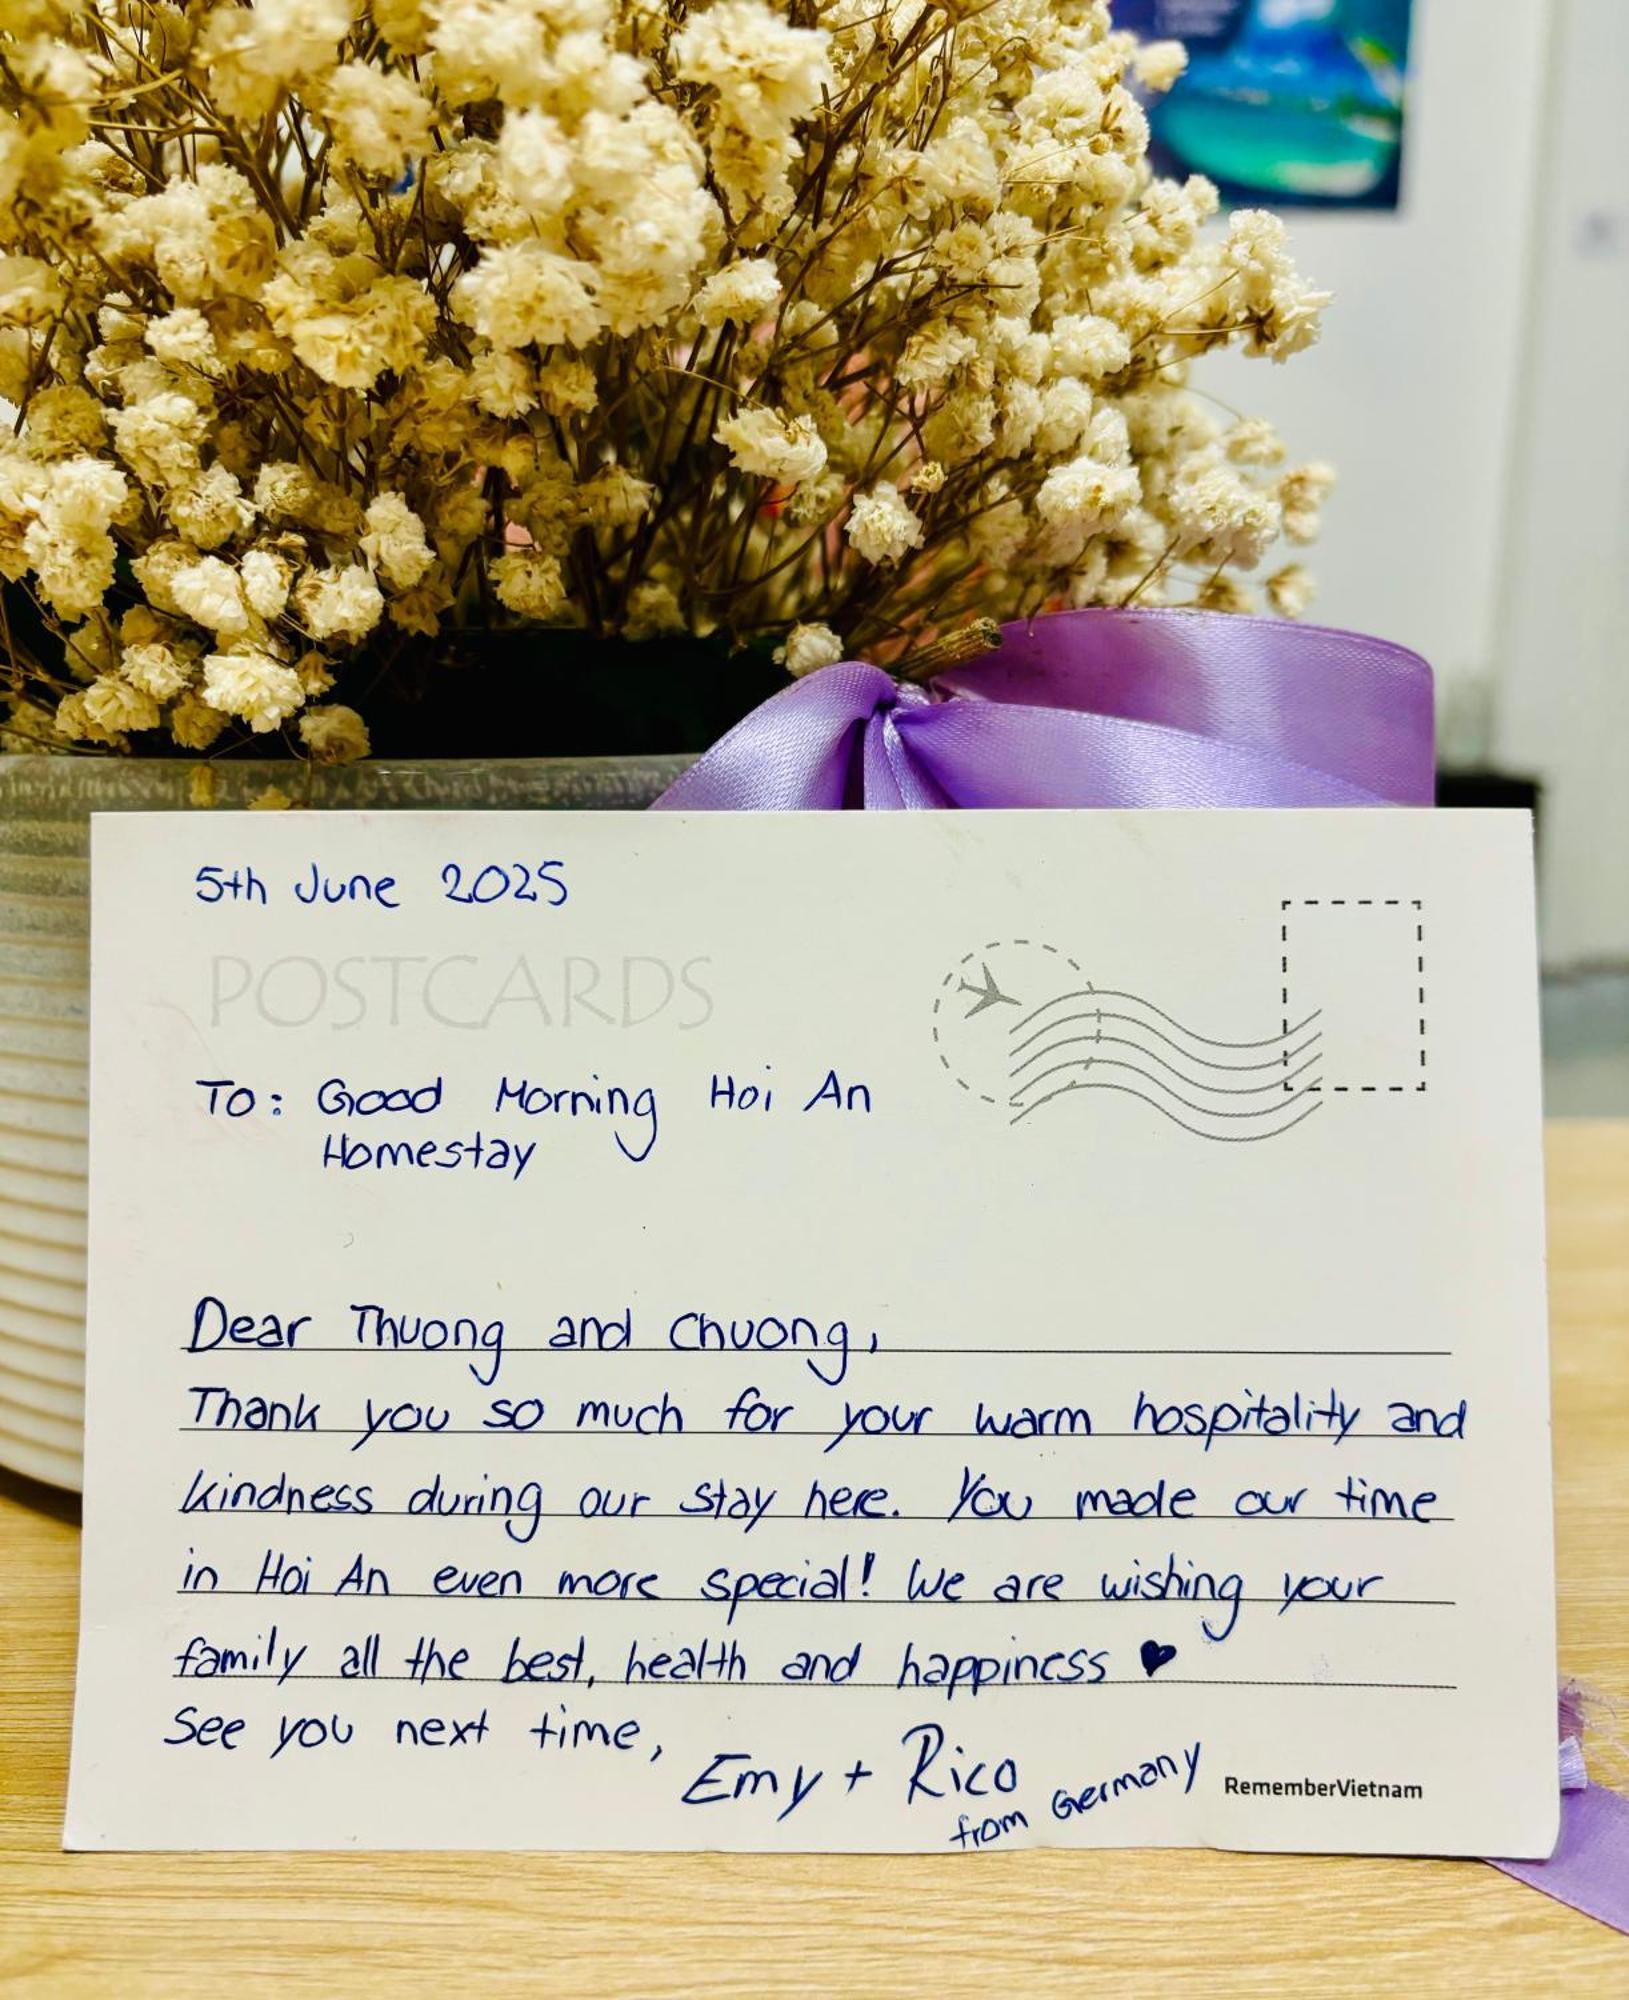 5th June 2025
POSTCARDS
To: Good Morning Hoi An
Homestay
Dear Thuong and Chuong,
Thank you so much for your warm hospitality and
kindness during our stay here. You made our time
in Hoi An even more special! We are wishing your
family all the best, health and happiness ♥
See you next time,
Emy + Rico
from Germany
RememberVietnam